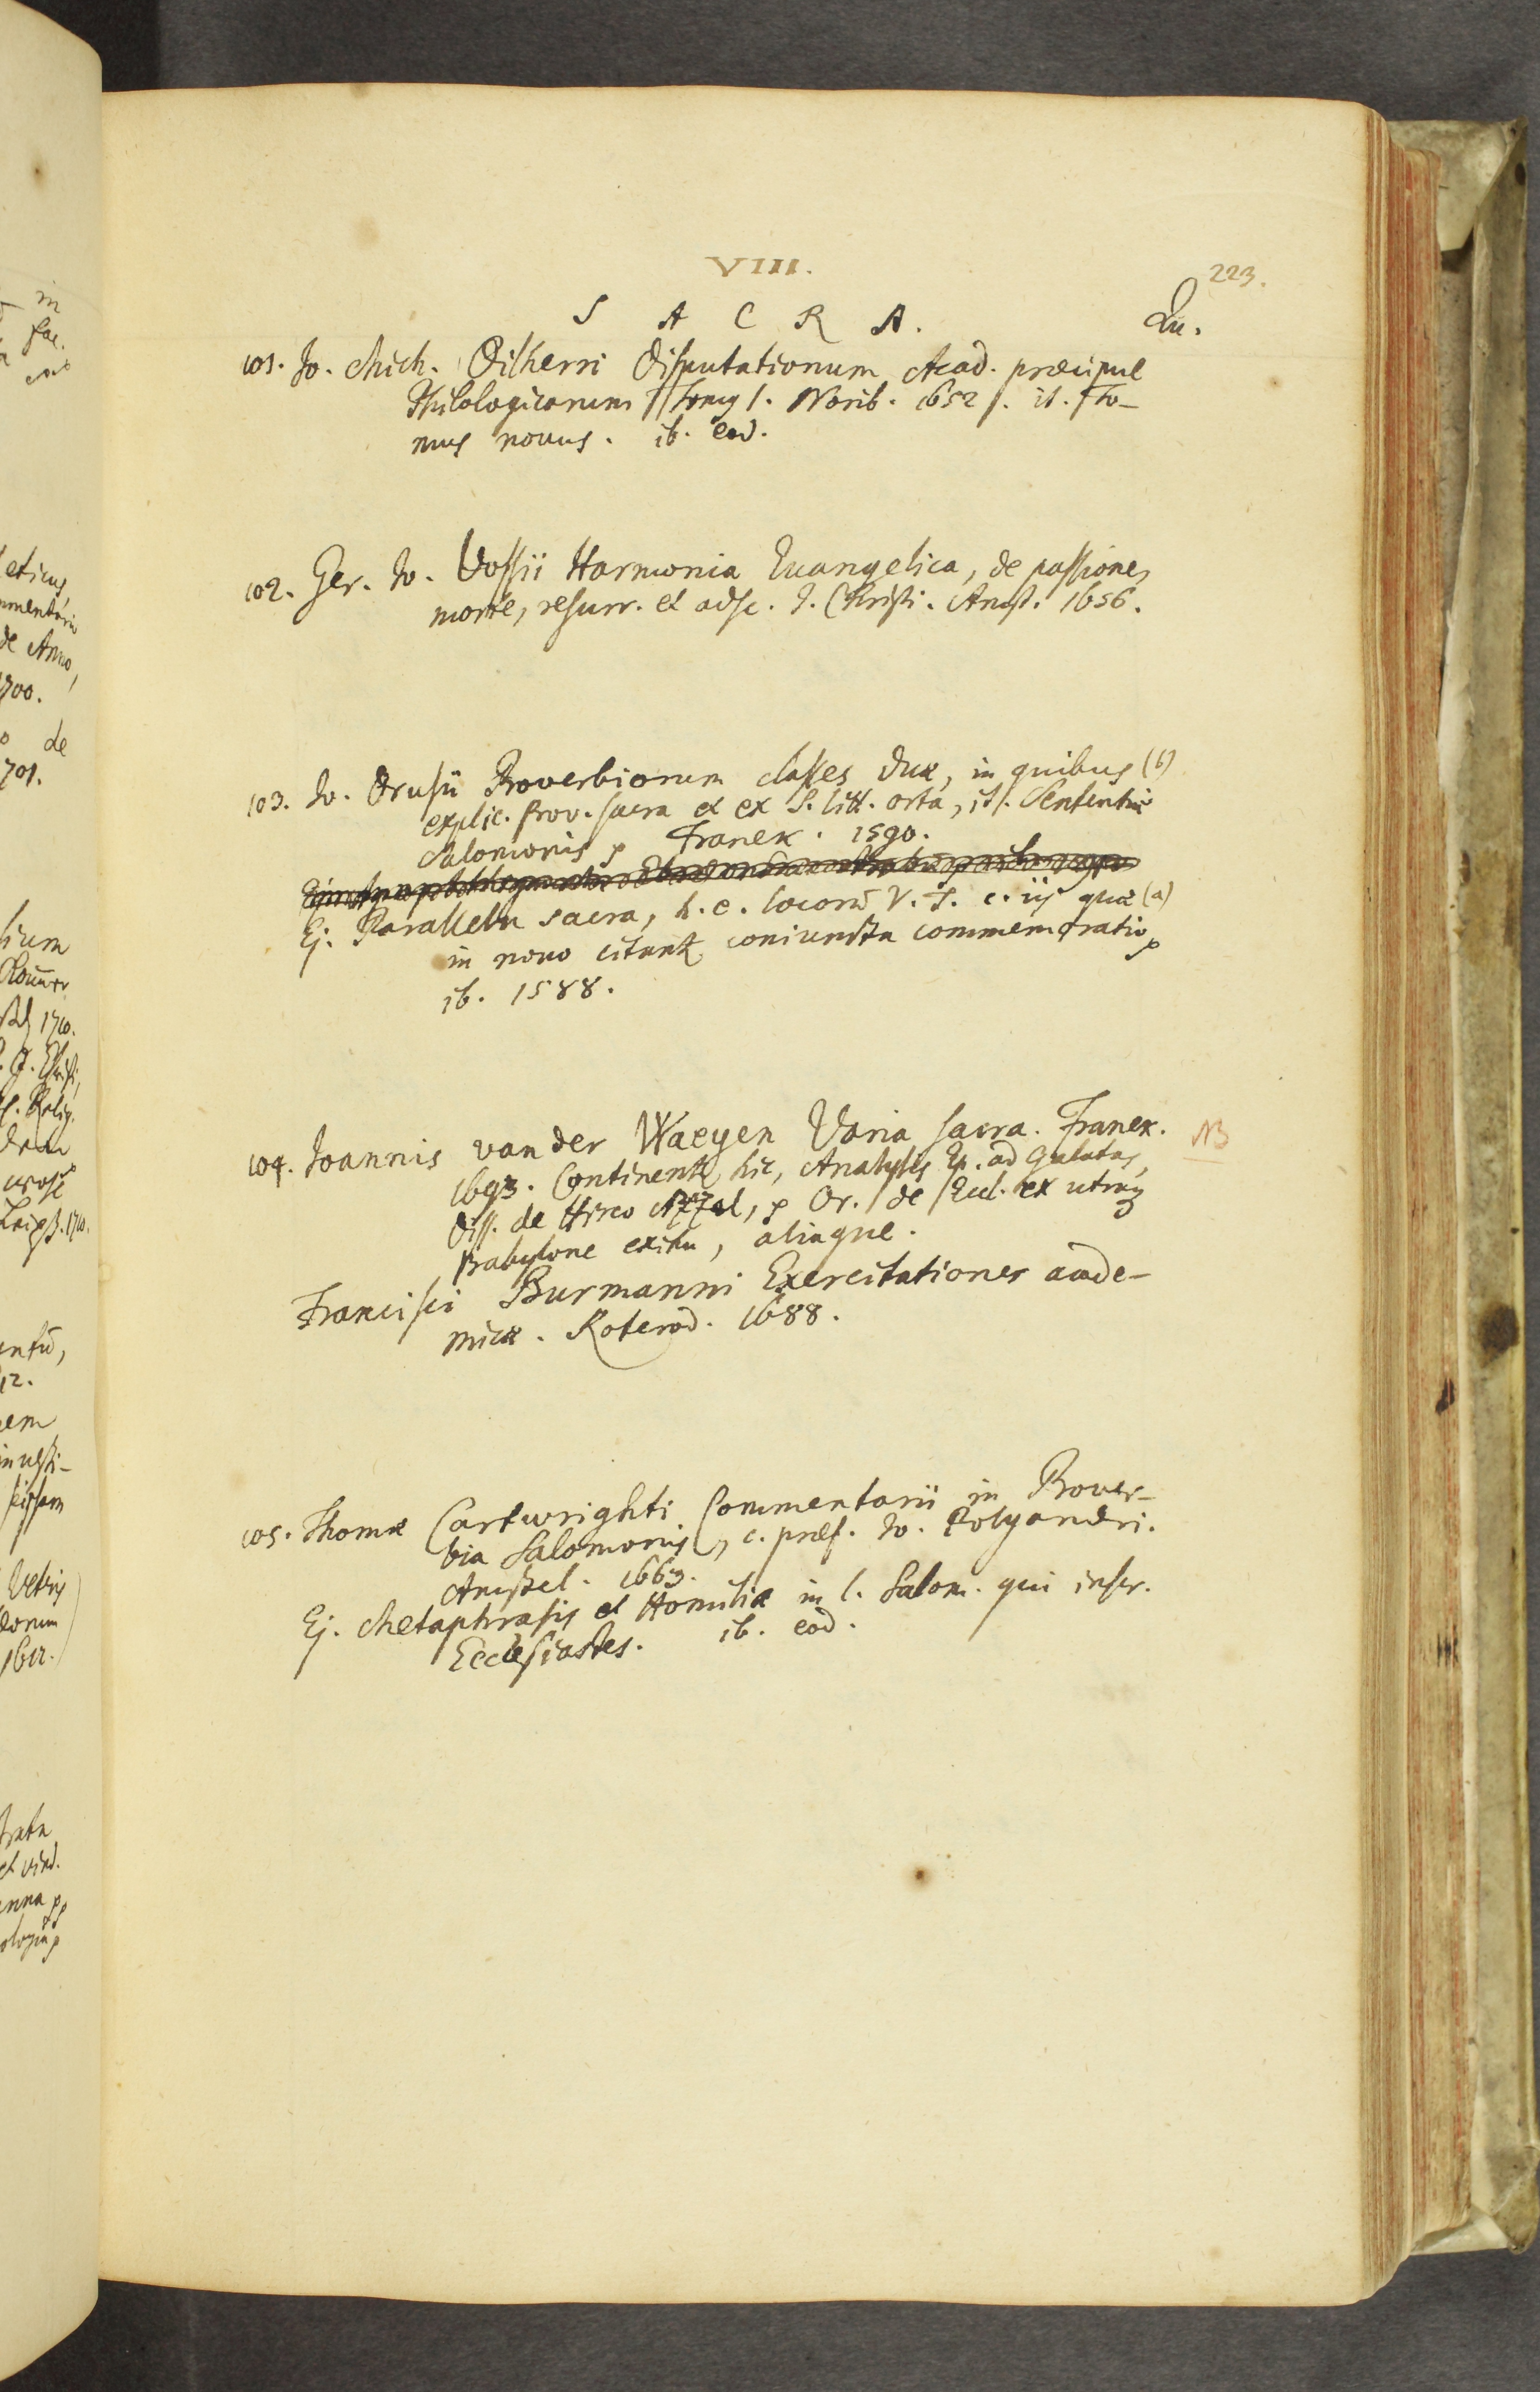 VIII.
223.
S A C R A.
Qu.
101. Jo. Mich. Dilherri Disputationum Acad. præcipue
Philologicarum Tomus I. Norib. 1652. it. To-
mus novus. ib. eod.
102. Ger. Jo. Vossii Harmonia Euangelica, de passione,
morte, resurr. et adsc. J. Christi. Amst. 1656.
103. Jo. Drusii Proverbiorum classes duæ, in quibus (b)
explic. prov. sacra et ex S. litt. orta, it. Sententiæ
Salomonis p Franek. 1590.
Ej. Parallela sacra, h. e. locorū V. T. c. iis quæ (a)
in novo citant coniuncta commemoratio p
ib. 1588.
104. Joannis van der Waeyen Varia sacra. Franek.
NB
1693. Continent hic, Analysis Ep. ad Galatas,
Diss. de Hirco Azazel, p Or. de Eccl. ex utraq
Babylone exitu, aliaque.
Francisci Burmanni Exercitationes acade-
micæ. Roterod. 1688.
105. Thomæ Cartwrighti Commentarii in Prover-
bia Salomonis, c. præf. Jo. Polyandri.
Amstel. 1663.
Ej. Metaphrasis et Homiliæ in l. Salom. qui inscr.
Ecclesiastes. ib. eod.